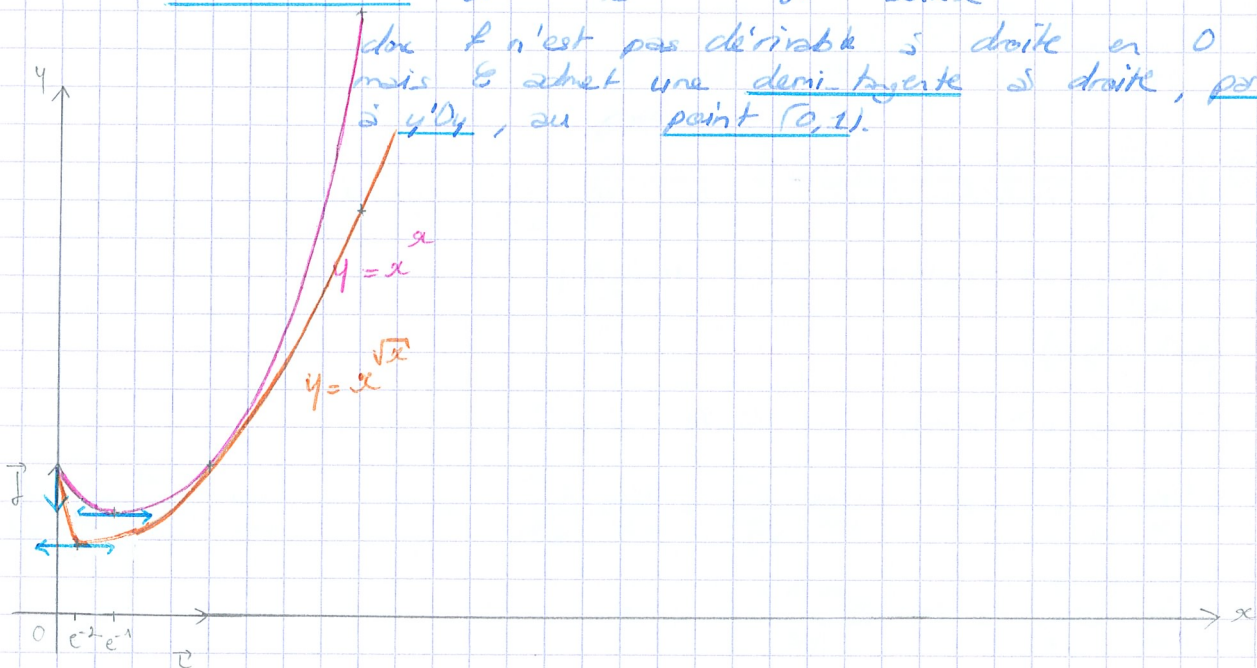 donc f n'est pas dérivable à droite en 0
mais C admet une demi-tangente à droite, par
à y'Oy, au point (0,1).
y
y = x^x
y = x^√x
j
0 e^-2 e^-1 x
i